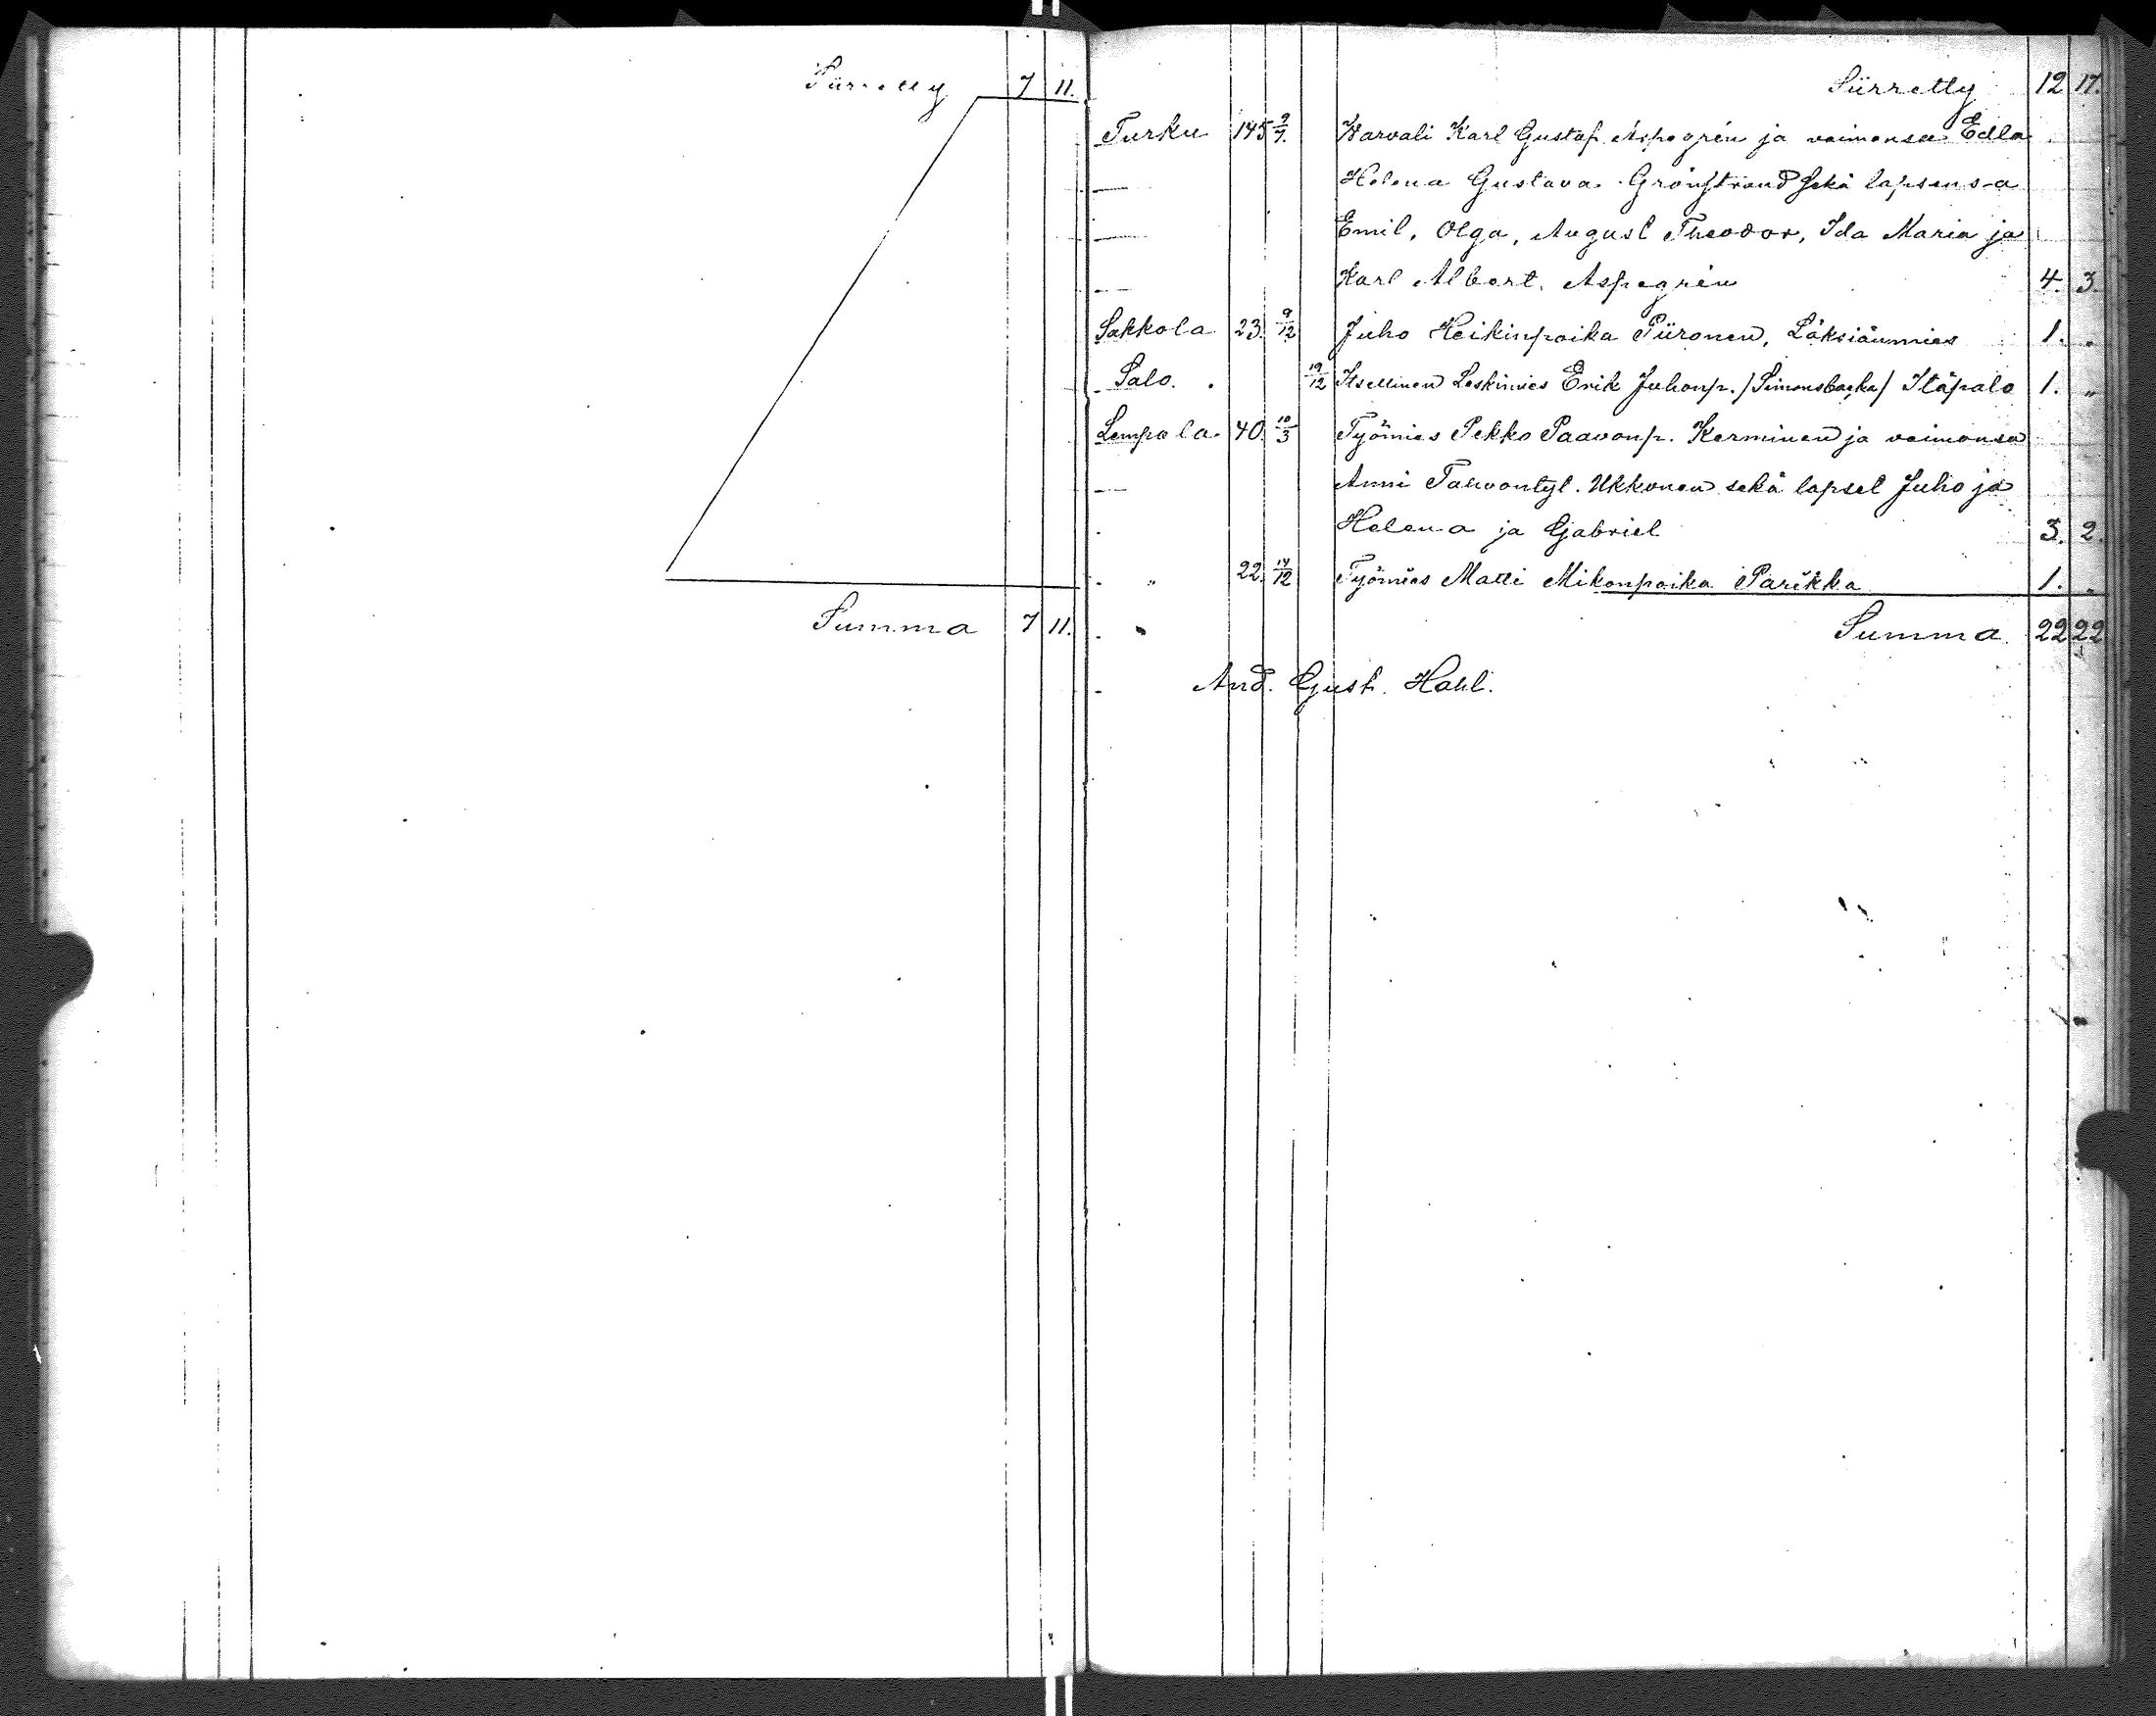 Siirretty 7 11.
Summa 7 11.
Siirretty 12 17.
Turku 145 9/7. Warvali Karl Gustaf Aspegrén ja vaimonsa Edla
Helena Gustava Grönstrand sekä lapsensa
Emil, Olga, August Theodor, Ida Maria ja
Karl Albert Aspegrén 4. 3.
Sakkola 23. 9/12 Juho Heikinpoika Piironen, Läksiäinmies 1. „
Salo. 19/12 Itsellinen Leskimies Erik Juhonp. /Simonsbacka/ Itäpalo 1. „
Lempala 40. 10/3 Työmies Pekko Paavonp. Kerminen ja vaimonsa
Anni Tahvontyt. Ukkonen sekä lapset Juho ja
Helena ja Gabriel 3. 2.
„ 22. 14/12 Työmies Matti Mikonpoika Parikka 1. „
„ Summa 22 22
And. Gust. Hahl.